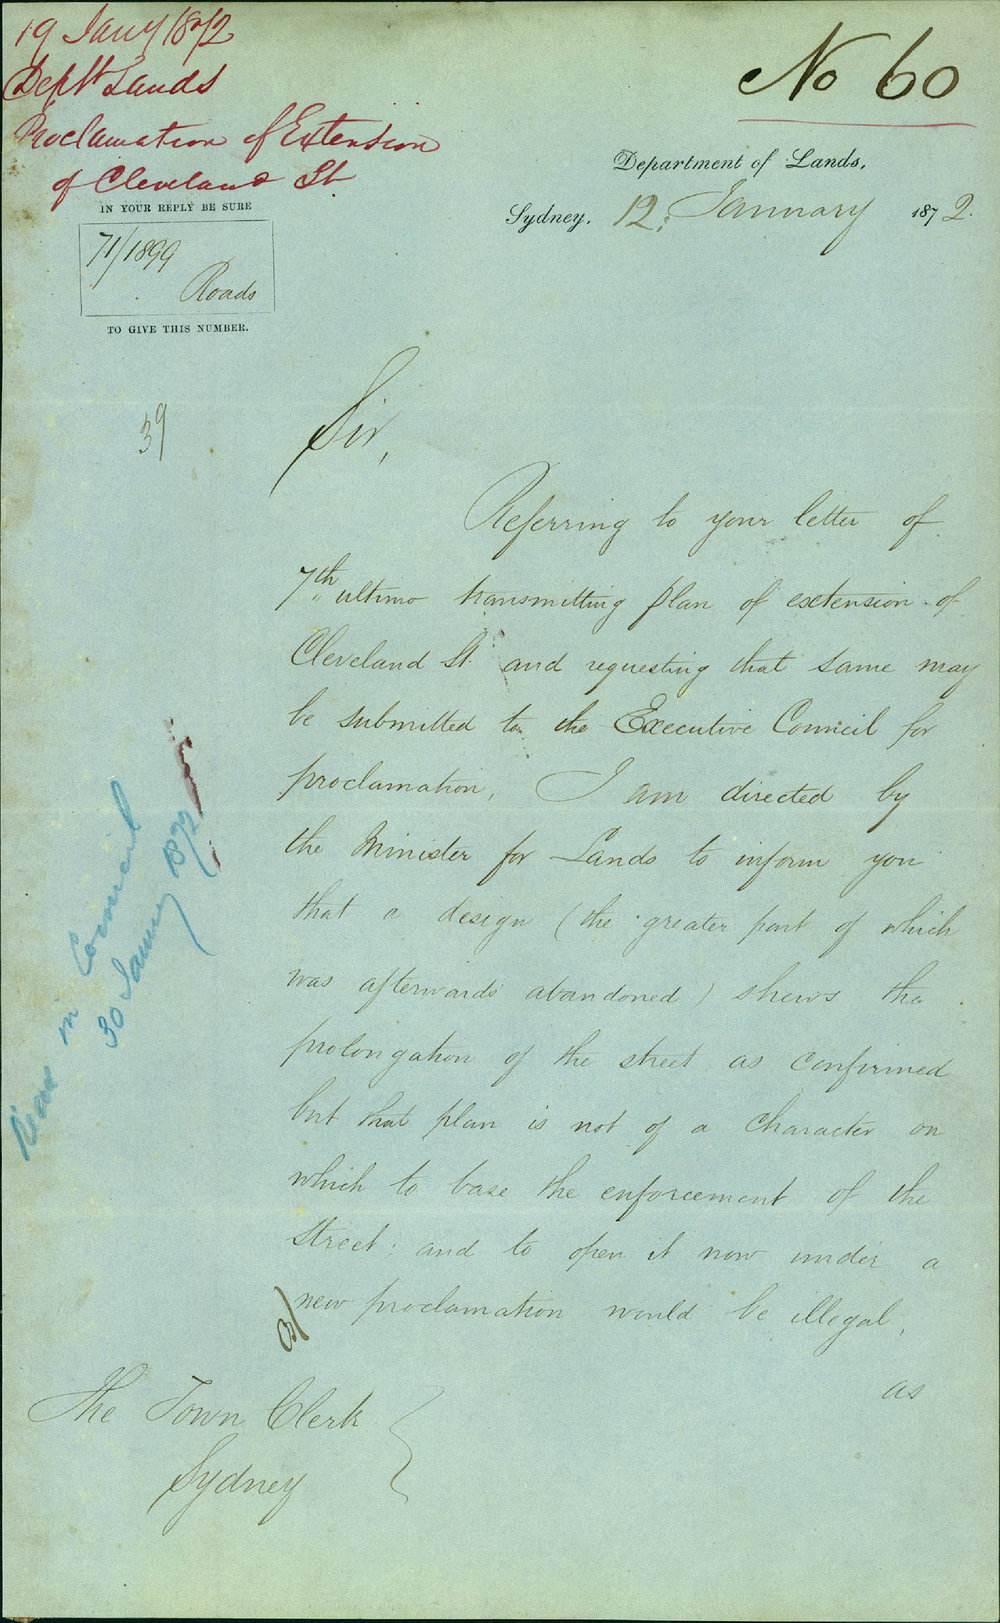 19 Jany 1872
Dept Lands
Proclamation of Extension
of Cleveland St
No 60
Department of Lands,
Sydney, 12 January 1872.
IN YOUR REPLY BE SURE
71/1899
Roads
TO GIVE THIS NUMBER.
39
Sir,
Referring to your letter of
7th ultimo transmitting plan of extension of
Cleveland St and requesting that same may
be submitted to the Executive Council for
proclamation, I am directed by
the Minister for Lands to inform you
that a design (the greater part of which
was afterwards abandoned) shews the
prolongation of the street as confirmed
but that plan is not of a character on
which to base the enforcement of the
street; and to open it now under a
new proclamation would be illegal,
as
in Council
30 January 1872
The Town Clerk
Sydney